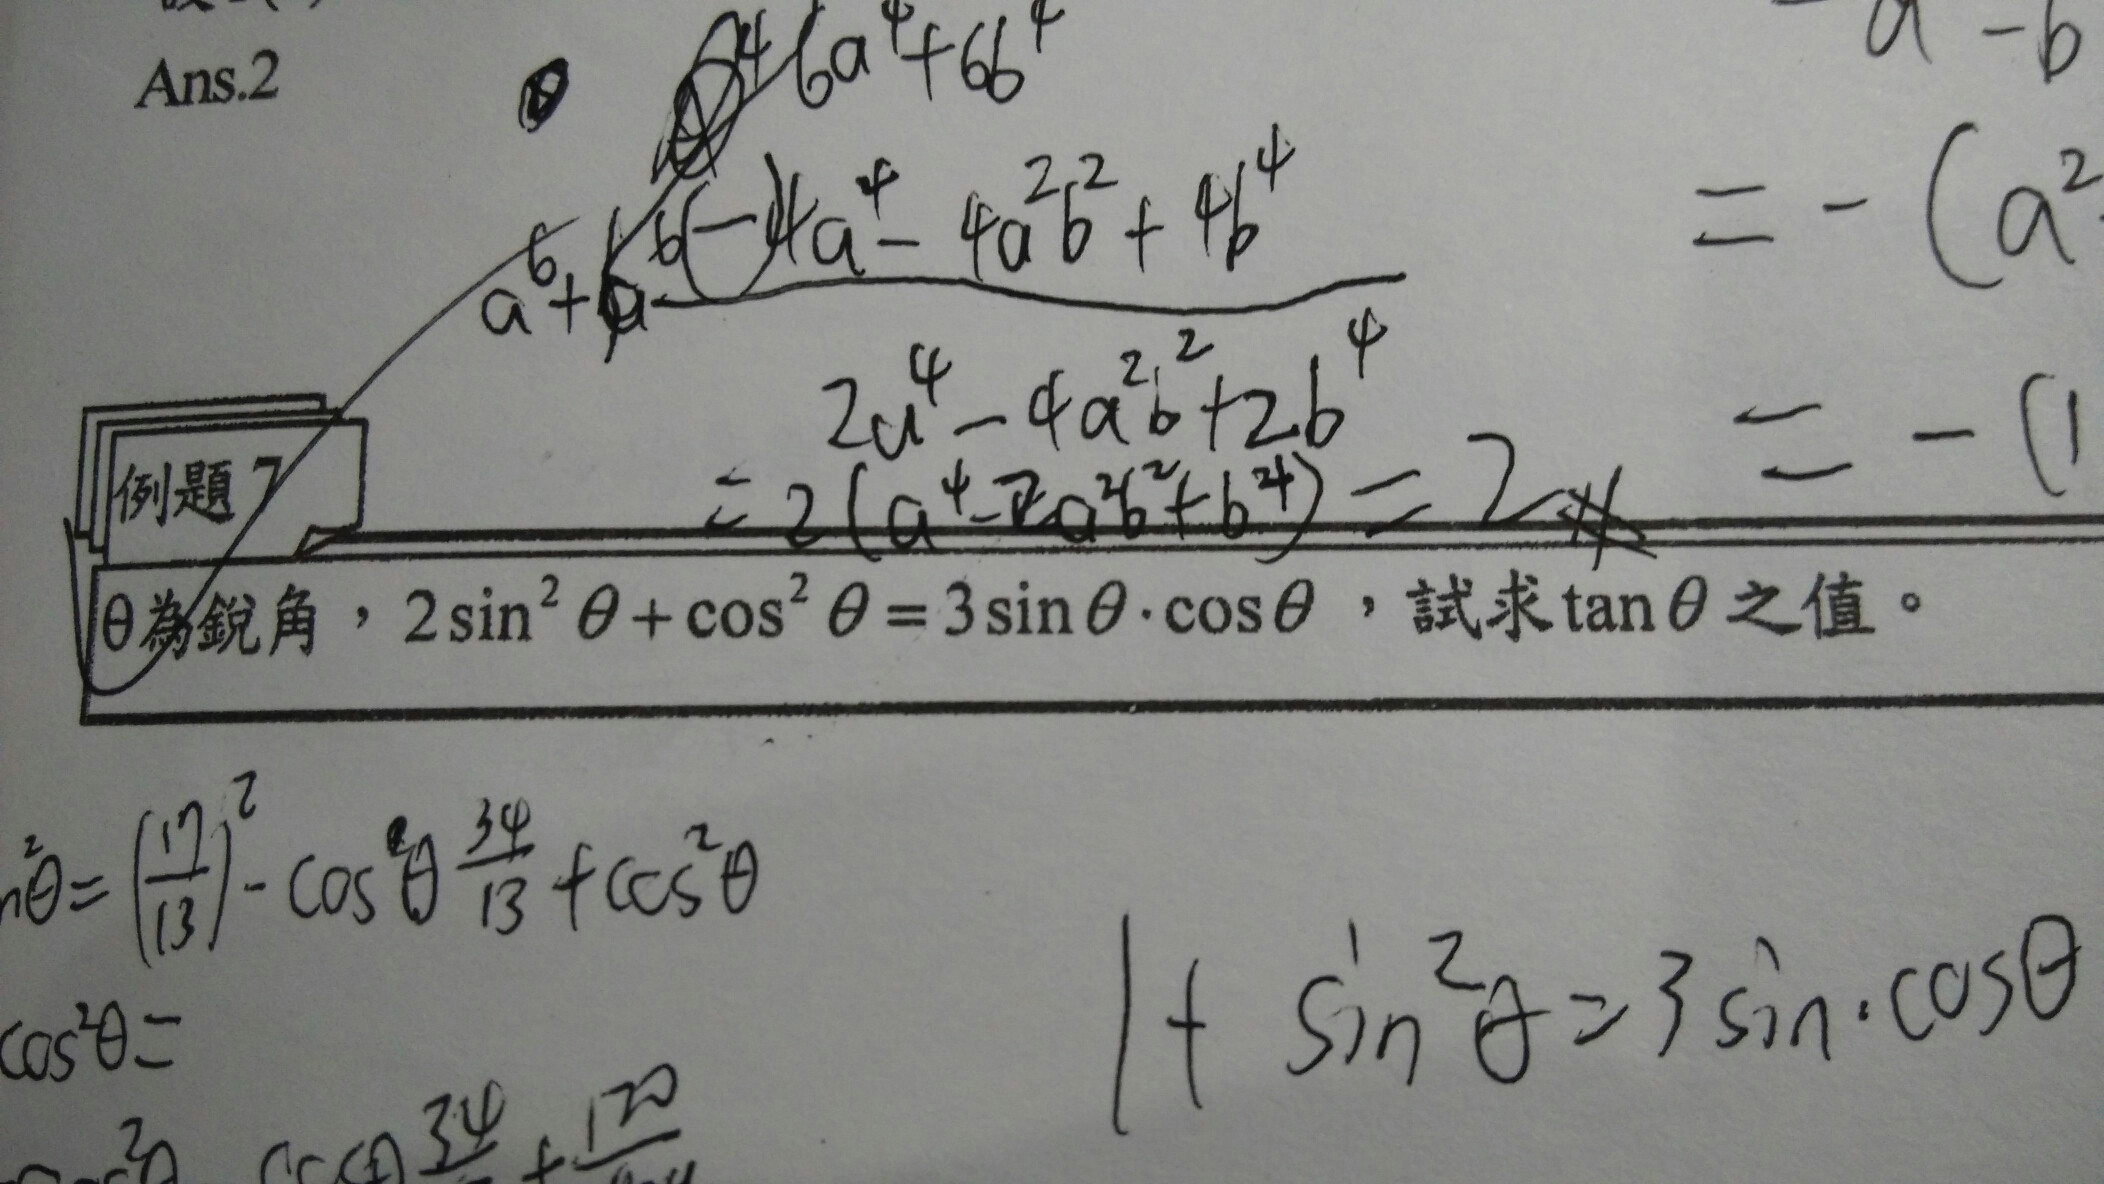 Ans.2
6a⁴+6b⁴
(-)4a⁴-4a²b²+4b⁴
a⁶+
2a⁴-4a²b²+2b⁴
=2(a⁴-2a²b²+b⁴)=2
-a -b
=-(a²
=-(1
例題 7
θ為銳角，2sin²θ+cos²θ=3sinθ·cosθ，試求tanθ之值。
n²θ=(17/13)²-cosθ 34/13+cos²θ
cos²θ=
1+ sin²θ=3sin·cosθ